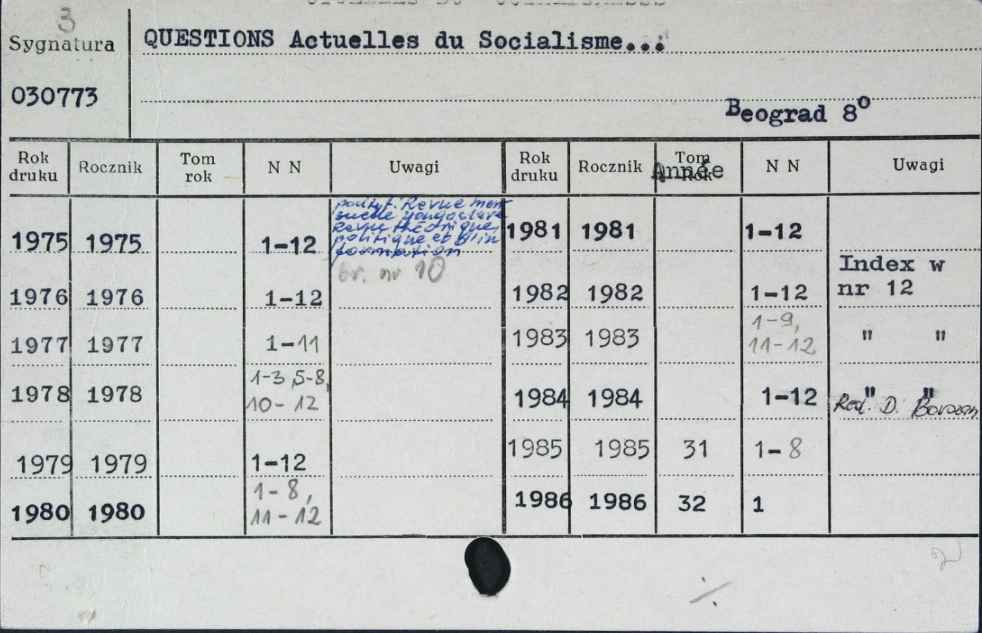 3
Sygnatura
QUESTIONS Actuelles du Socialisme...
030773
Beograd 8°
Rok druku Rocznik Tom rok N N Uwagi Rok druku Rocznik Tom rok Année N N Uwagi
1975 1975 1-12
podtyt. Revue men
suelle yougoslave
Revue théorique,
politique et d'in
formation
br. nr 10
1981 1981 1-12
1976 1976 1-12
1982 1982 1-12 Index w
nr 12
1977 1977 1-11
1983 1983 1-9,
11-12 " "
1978 1978 1-3, 5-8,
10-12
1984 1984 1-12 " "
Red. D.
1979 1979 1-12
1985 1985 31 1-8
1980 1980 1-8,
11-12
1986 1986 32 1